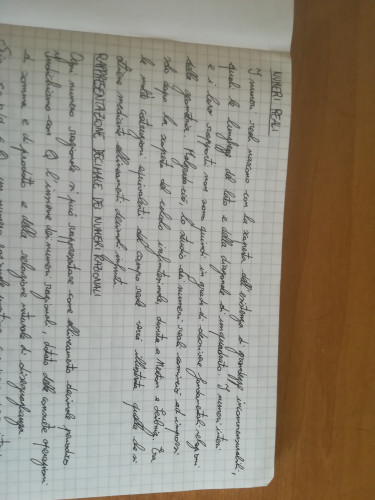 NUMERI REALI
I numeri reali nascono con la scoperta dell'esistenza di grandezze incommensurabili,
quali le lunghezze del lato e della diagonale di un quadrato. I numeri interi
e i loro rapporti non sono quindi in grado di descrivere fondamentali relazioni
della geometria. Malgrado ciò, lo studio dei numeri reali cominciò ad imporsi
solo dopo la scoperta del calcolo infinitesimale, dovuta a Newton e Leibniz. Tra
le molte costruzioni equivalenti del campo reale sarà illustrata quella che si
ottiene mediante allineamenti decimali infiniti.
RAPPRESENTAZIONE DECIMALE DEI NUMERI RAZIONALI
Ogni numero razionale si può rappresentare come allineamento decimale periodico
Indichiamo con Q l'insieme dei numeri razionali, dotato delle consuete operazioni
di somma e di prodotto e della relazione naturale di disuguaglianza
un numero razionale